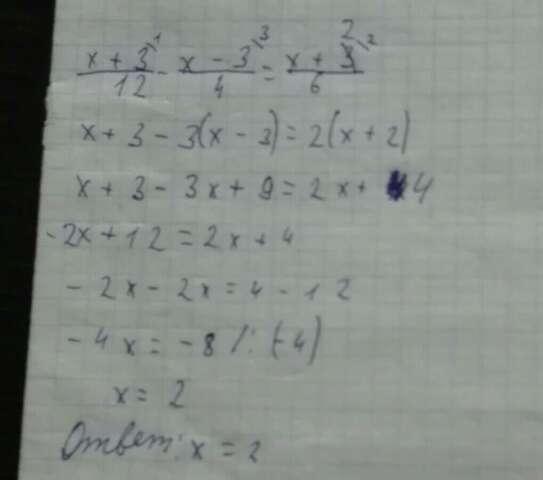 (x + 3)/12 - (x - 3)/4 = (x + 2)/6
x + 3 - 3(x - 3) = 2(x + 2)
x + 3 - 3x + 9 = 2x + 4
-2x + 12 = 2x + 4
-2x - 2x = 4 - 12
-4x = -8 /: (-4)
x = 2
Ответ: x = 2